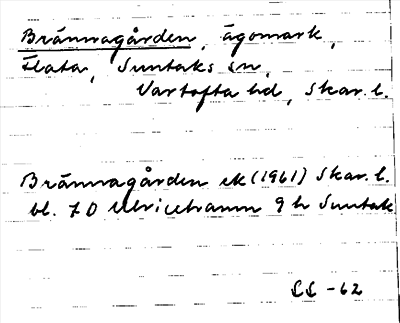 Brännagården, ägomark,
Flata, Suntaks sn,
Vartofta hd, Skar. l.
Brännagården ek (1961) Skar. l.
bl. 7 D Ulricehamn 9 h Suntak
SS -62